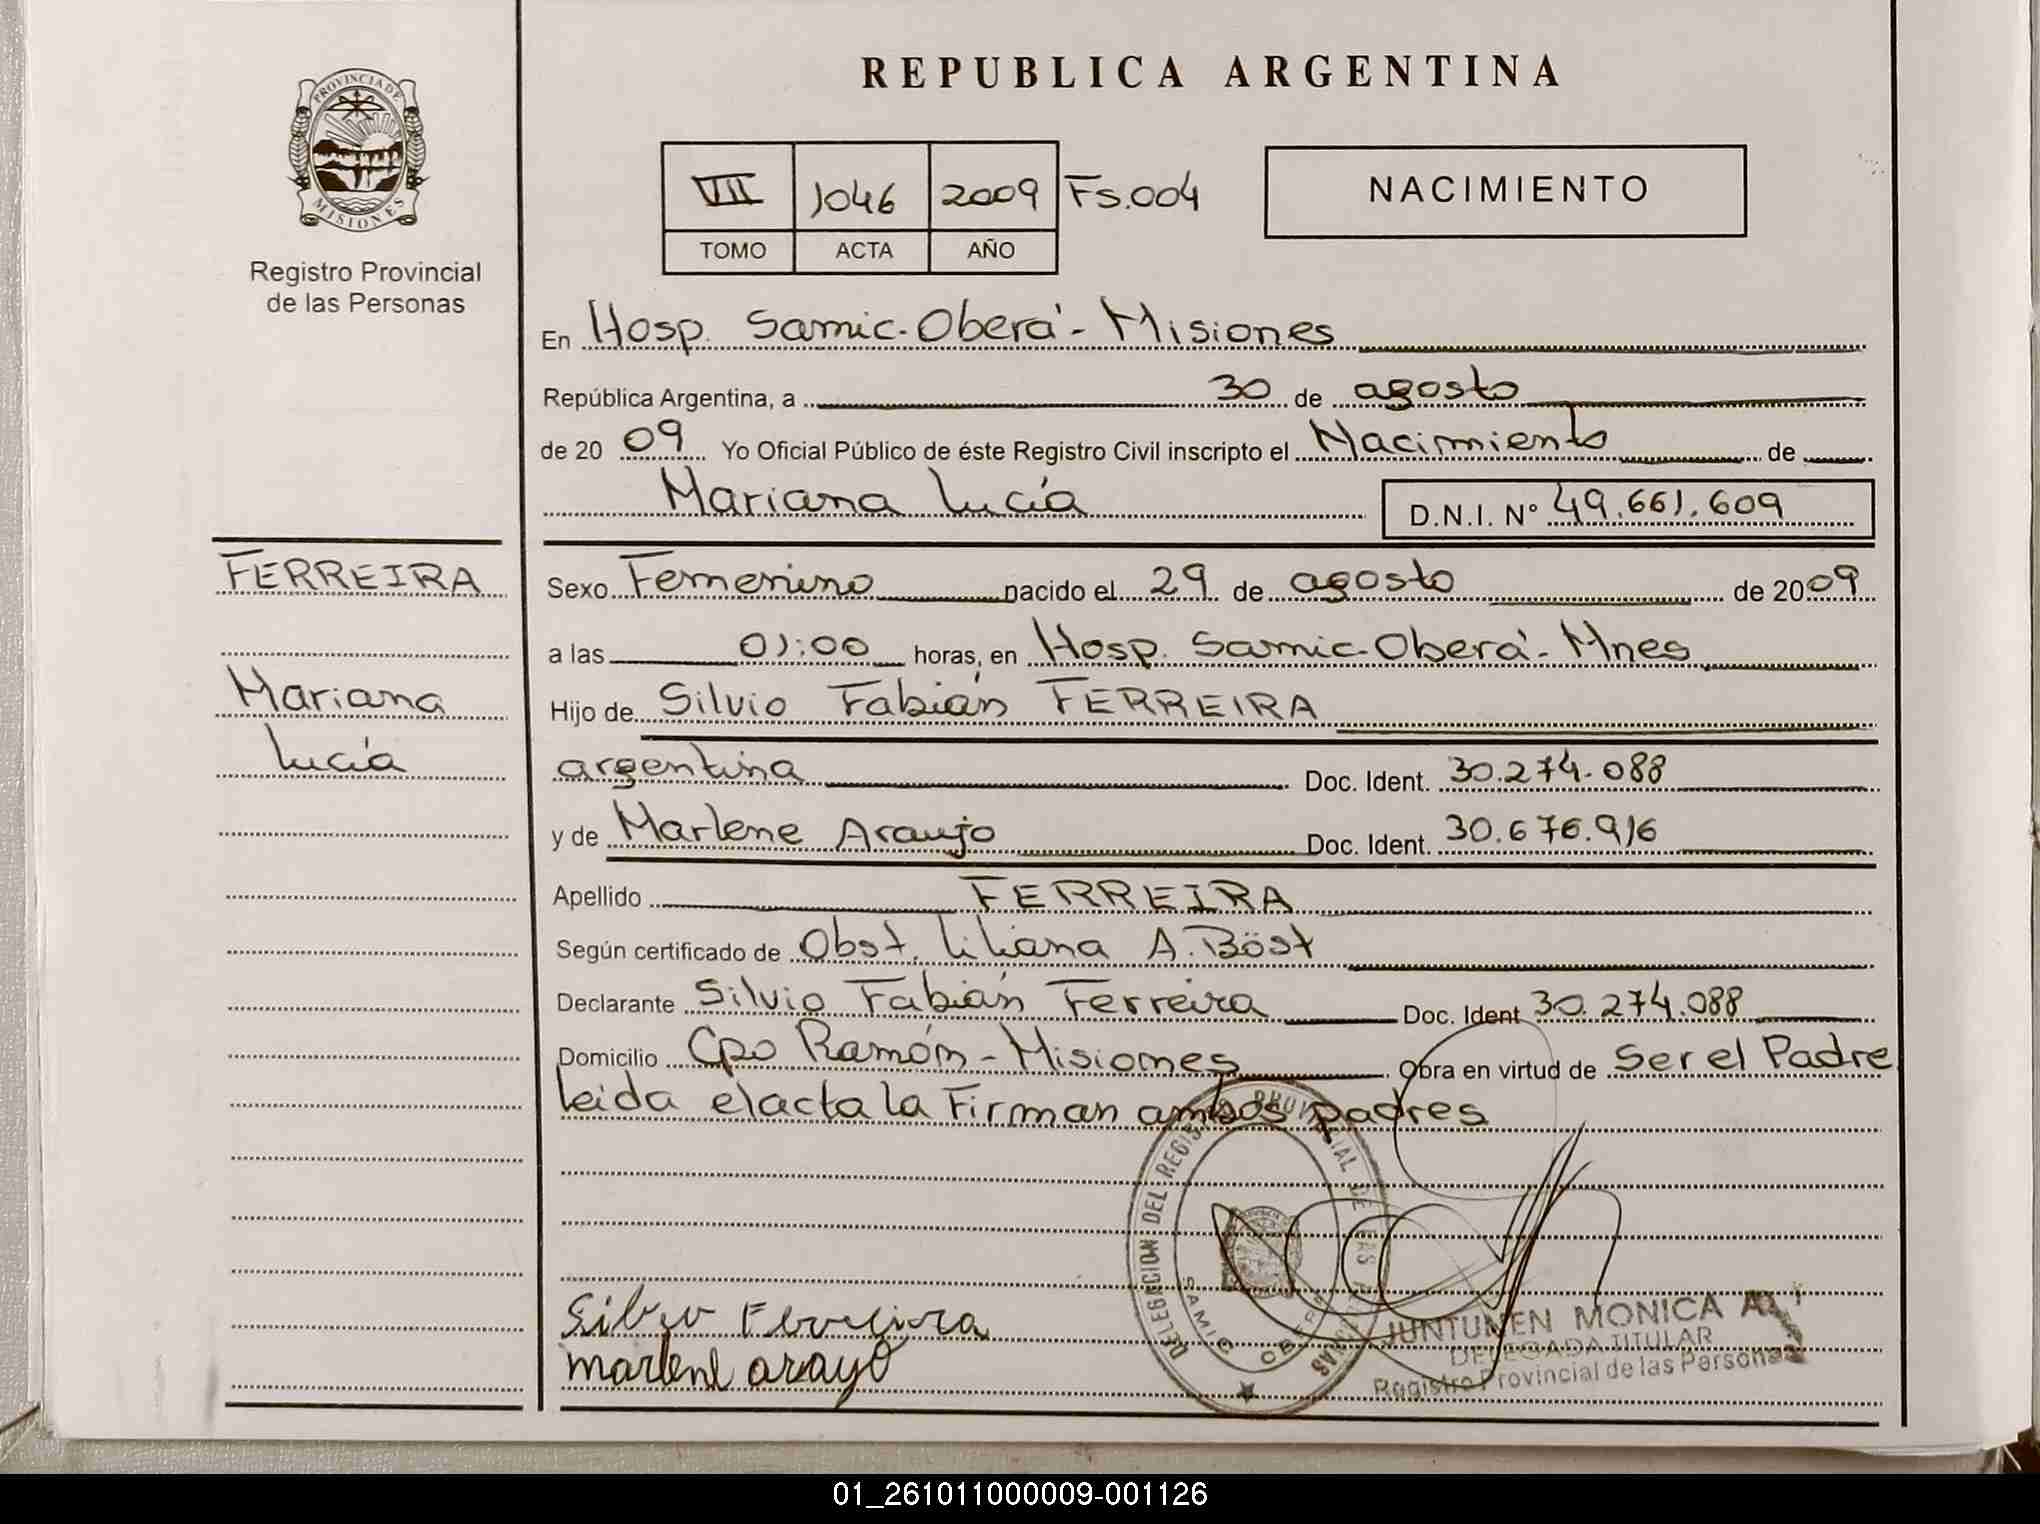 PROVINCIA DE
MISIONES
Registro Provincial
de las Personas
REPUBLICA ARGENTINA
VII 1046 2009 Fs.004
TOMO ACTA AÑO
NACIMIENTO
En Hosp. Samic-Oberá-Misiones
República Argentina, a 30 de agosto
de 2009 Yo Oficial Público de éste Registro Civil inscripto el Nacimiento de
Mariana Lucía D.N.I. N° 49.661.609
FERREIRA
Mariana
Lucía
Sexo Femenino nacido el 29 de agosto de 2009
a las 01:00 horas, en Hosp. Samic-Oberá-Mnes
Hijo de Silvio Fabián FERREIRA
argentina Doc. Ident. 30.274.088
y de Marlene Araujo Doc. Ident. 30.676.916
Apellido FERREIRA
Según certificado de Obst. Liliana A. Böst
Declarante Silvio Fabián Ferreira Doc. Ident 30.274.088
Domicilio Cpo Ramón-Misiones Obra en virtud de Ser el Padre
leida el acta la Firman ambos padres
DELEGACION DEL REGISTRO PROVINCIAL DE LAS PERSONAS
SAMIC OBERA
Ferreira
marlene
JUNTUNEN MONICA
DELEGADA TITULAR
Registro Provincial de las Personas
01_261011000009-001126